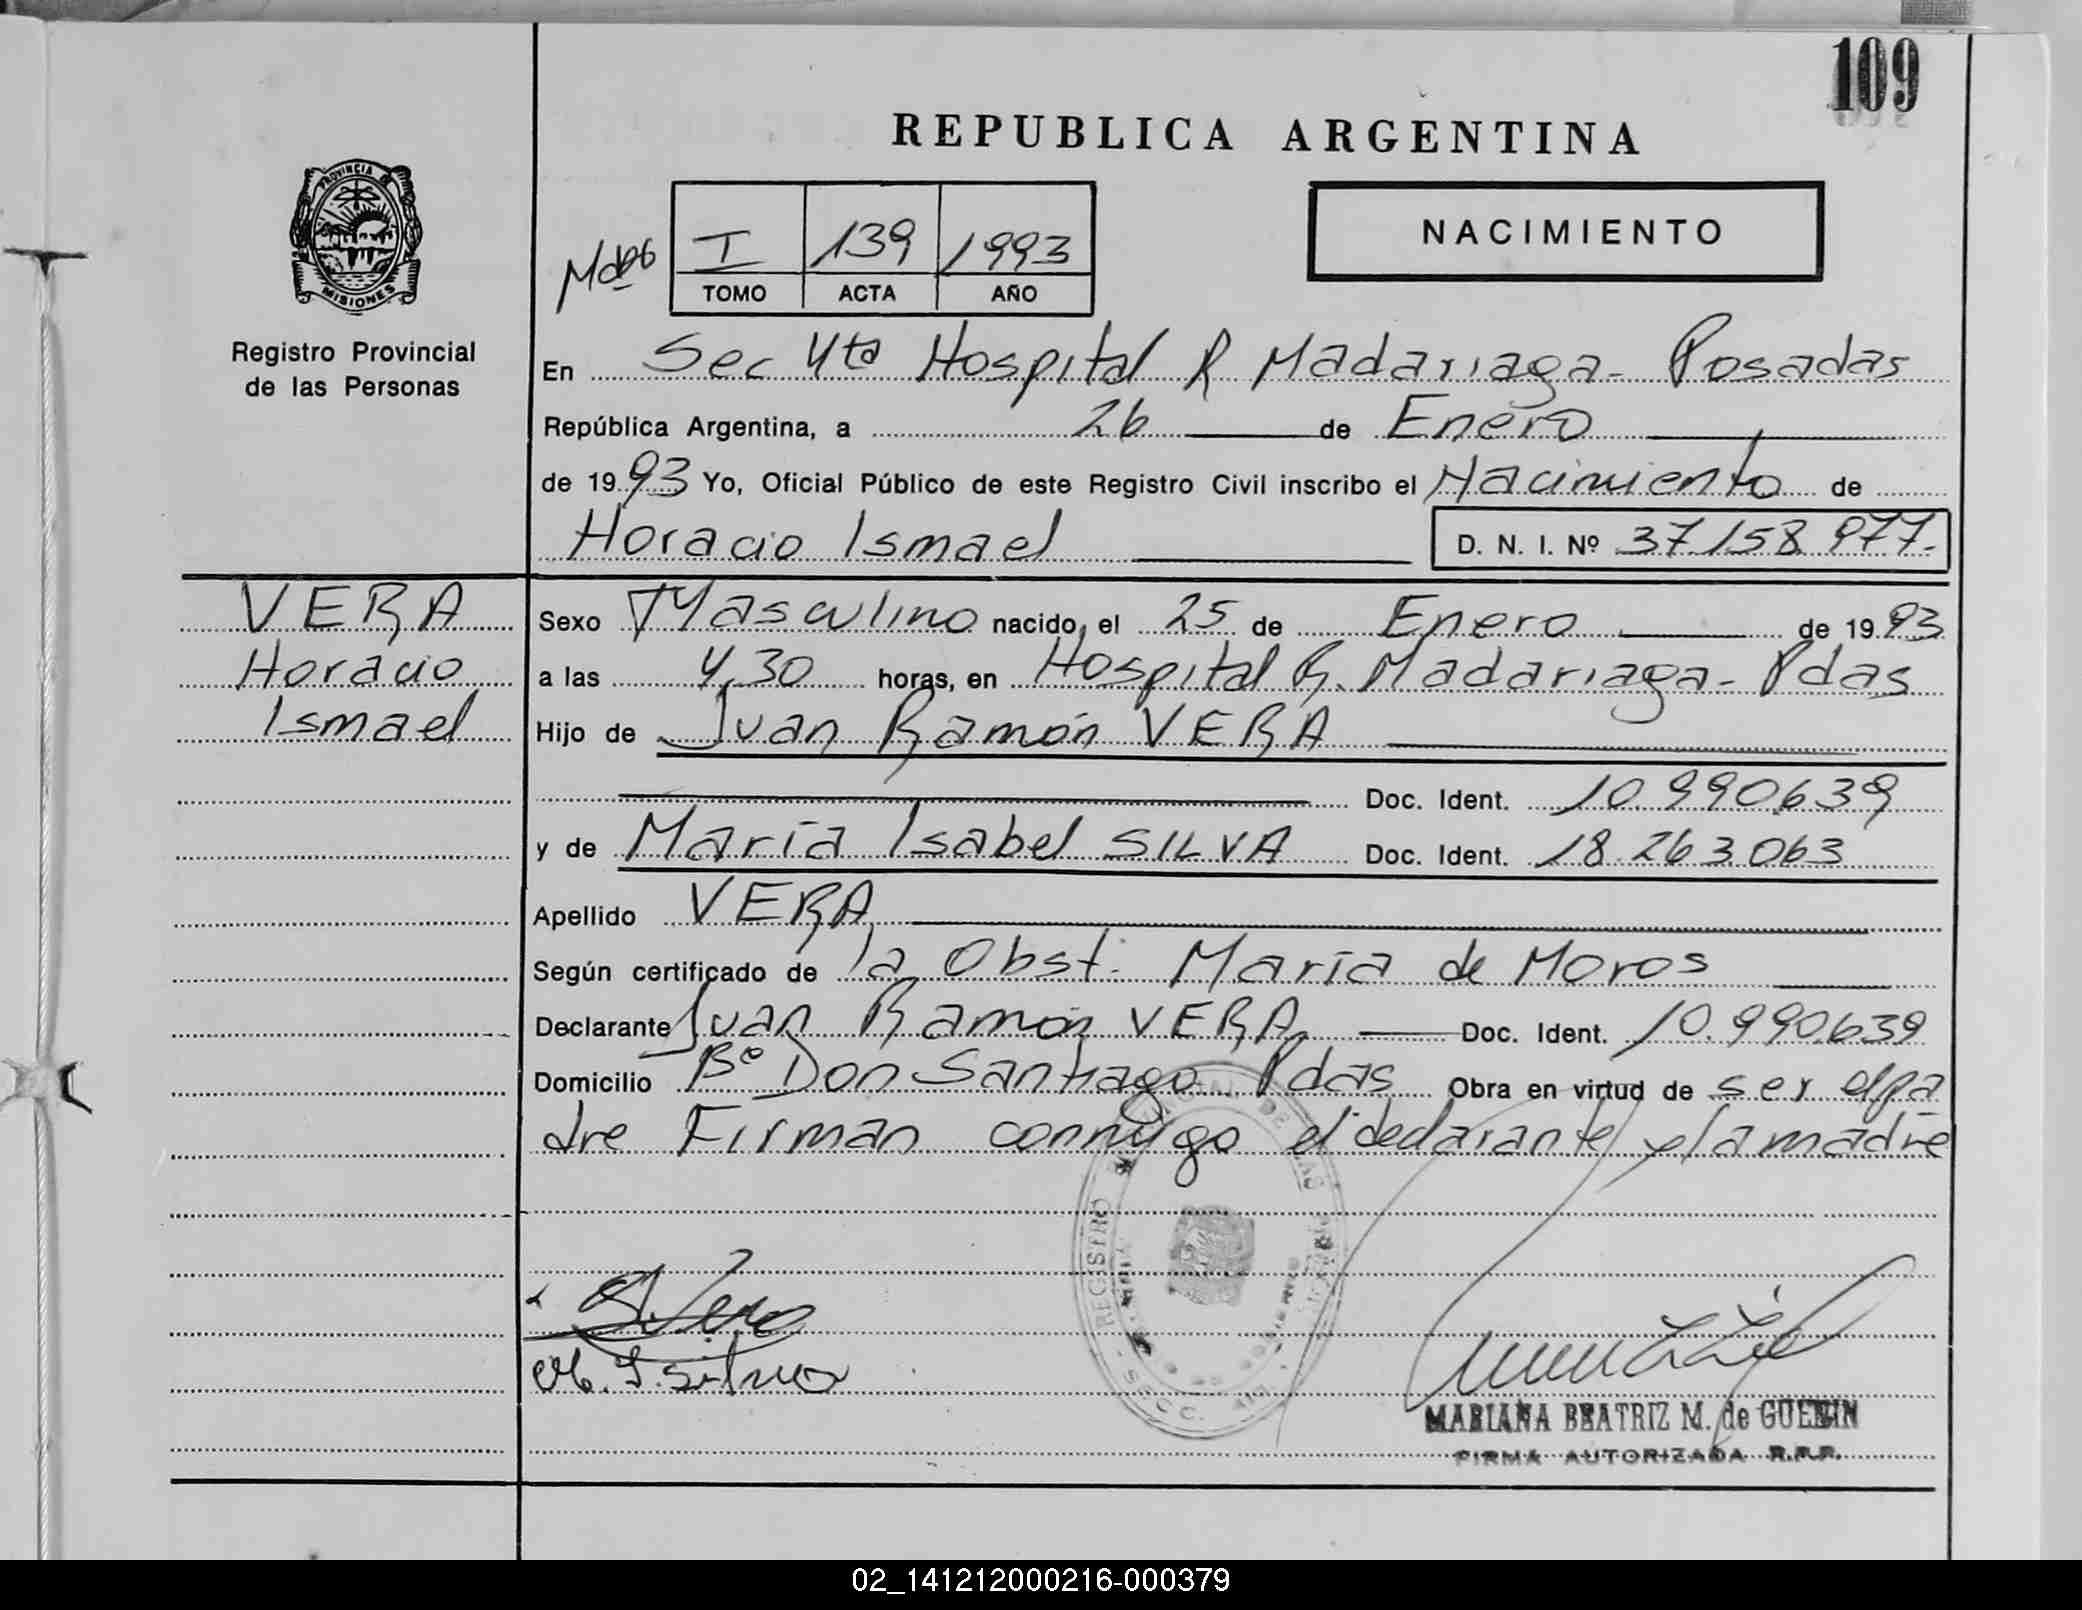 109
REPUBLICA ARGENTINA
PROVINCIA DE
MISIONES
Registro Provincial
de las Personas
I 139 1993
TOMO ACTA AÑO
NACIMIENTO
En Sec 4ta Hospital R Madariaga - Posadas
República Argentina, a 26 de Enero
de 1993 Yo, Oficial Público de este Registro Civil inscribo el Nacimiento de
Horacio Ismael D. N. I. Nº 37.158.977.
VERA
Horacio
Ismael
Sexo Masculino nacido, el 25 de Enero de 1993
a las 4,30 horas, en Hospital R. Madariaga - Pdas
Hijo de Juan Ramón VERA
Doc. Ident. 10.990.639
y de María Isabel SILVA Doc. Ident. 18.263.063
Apellido VERA
Según certificado de la Obst. María de Moros
Declarante Juan Ramón VERA Doc. Ident. 10.990.639
Domicilio Bº Don Santiago Pdas Obra en virtud de ser el pa
dre Firman conmigo el declarante y la madre
M. I. Silva
REGISTRO DE LAS
SECC.
MARIANA BEATRIZ M. de GUERIN
FIRMA AUTORIZADA R.P.P.
02_141212000216-000379